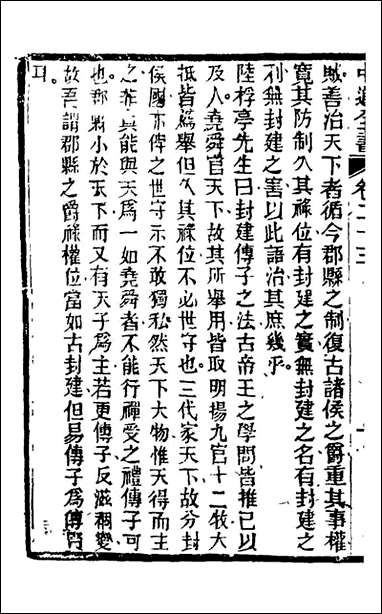 中道全書 卷二十三
賊善治天下者循今郡縣之制復古諸侯之爵重其事權
寬其防制久其祿位有封建之實無封建之名有封建之
利無封建之害以此語治其庶幾乎
陸桴亭先生曰封建傳子之法古帝王之學問皆推已以
及人堯舜官天下故其所舉用皆取明揚九官十二牧大
抵皆為舉但久其祿位不必世守也三代家天下故分封
侯國亦俾之世守示不敢獨私然天下大物惟天得而主
之非真能與天為一如堯舜者不能行禪受之禮傳子可
也郡縣小於天下而又有天子為主若更傳子反滋禍變
故吾謂郡縣之爵祿權位當如古封建但易傳子為傳賢
耳